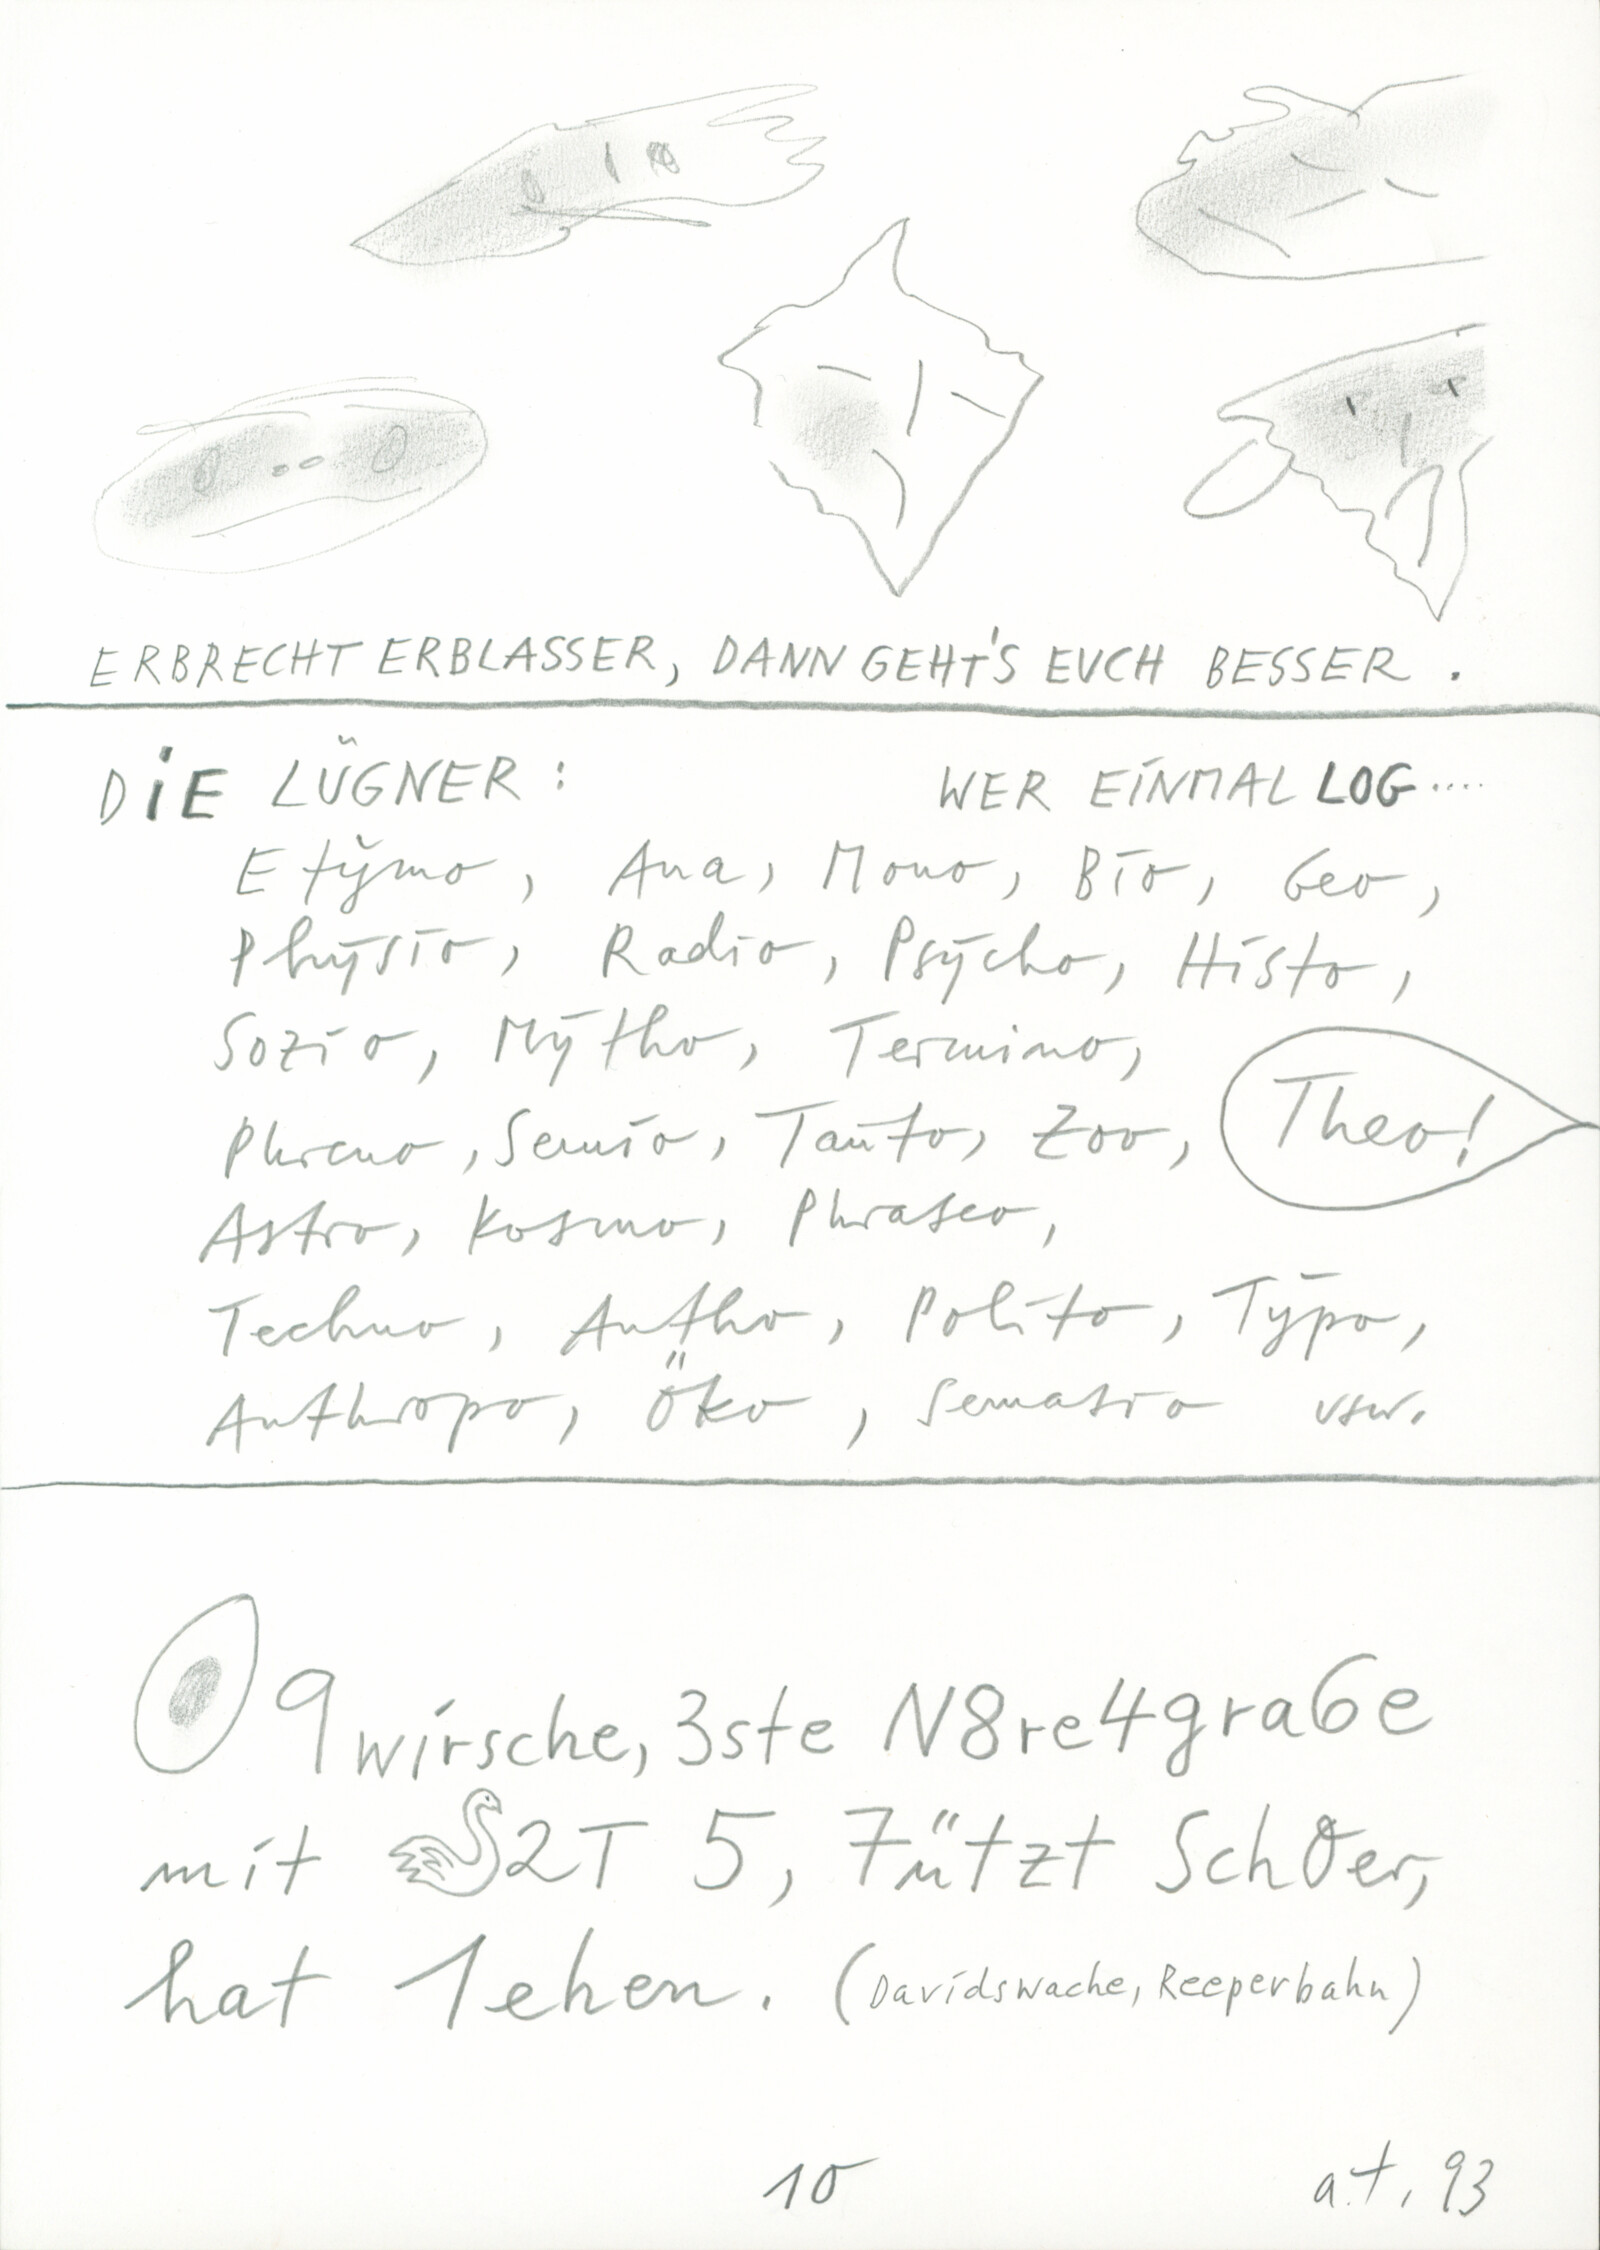 ERBRECHT ERBLASSER, DANN GEHT'S EUCH BESSER.
DiE LÜGNER: WER EINMAL LOG.....
Etymo, Ana, Mono, Bio, Geo,
Physio, Radio, Psycho, Histo,
Sozio, Mytho, Termino,
Phreno, Semio, Tauto, Zoo, Theo!
Astro, Kosmo, Phraseo,
Techno, Antho, Polito, Typo,
Anthropo, Öko, Semasio usw.
9wirsche, 3ste N8re4gra6e
mit 2T 5, 7ützt Sch0er,
hat 1ehen. (Davidswache, Reeperbahn)
10 a.t. 93